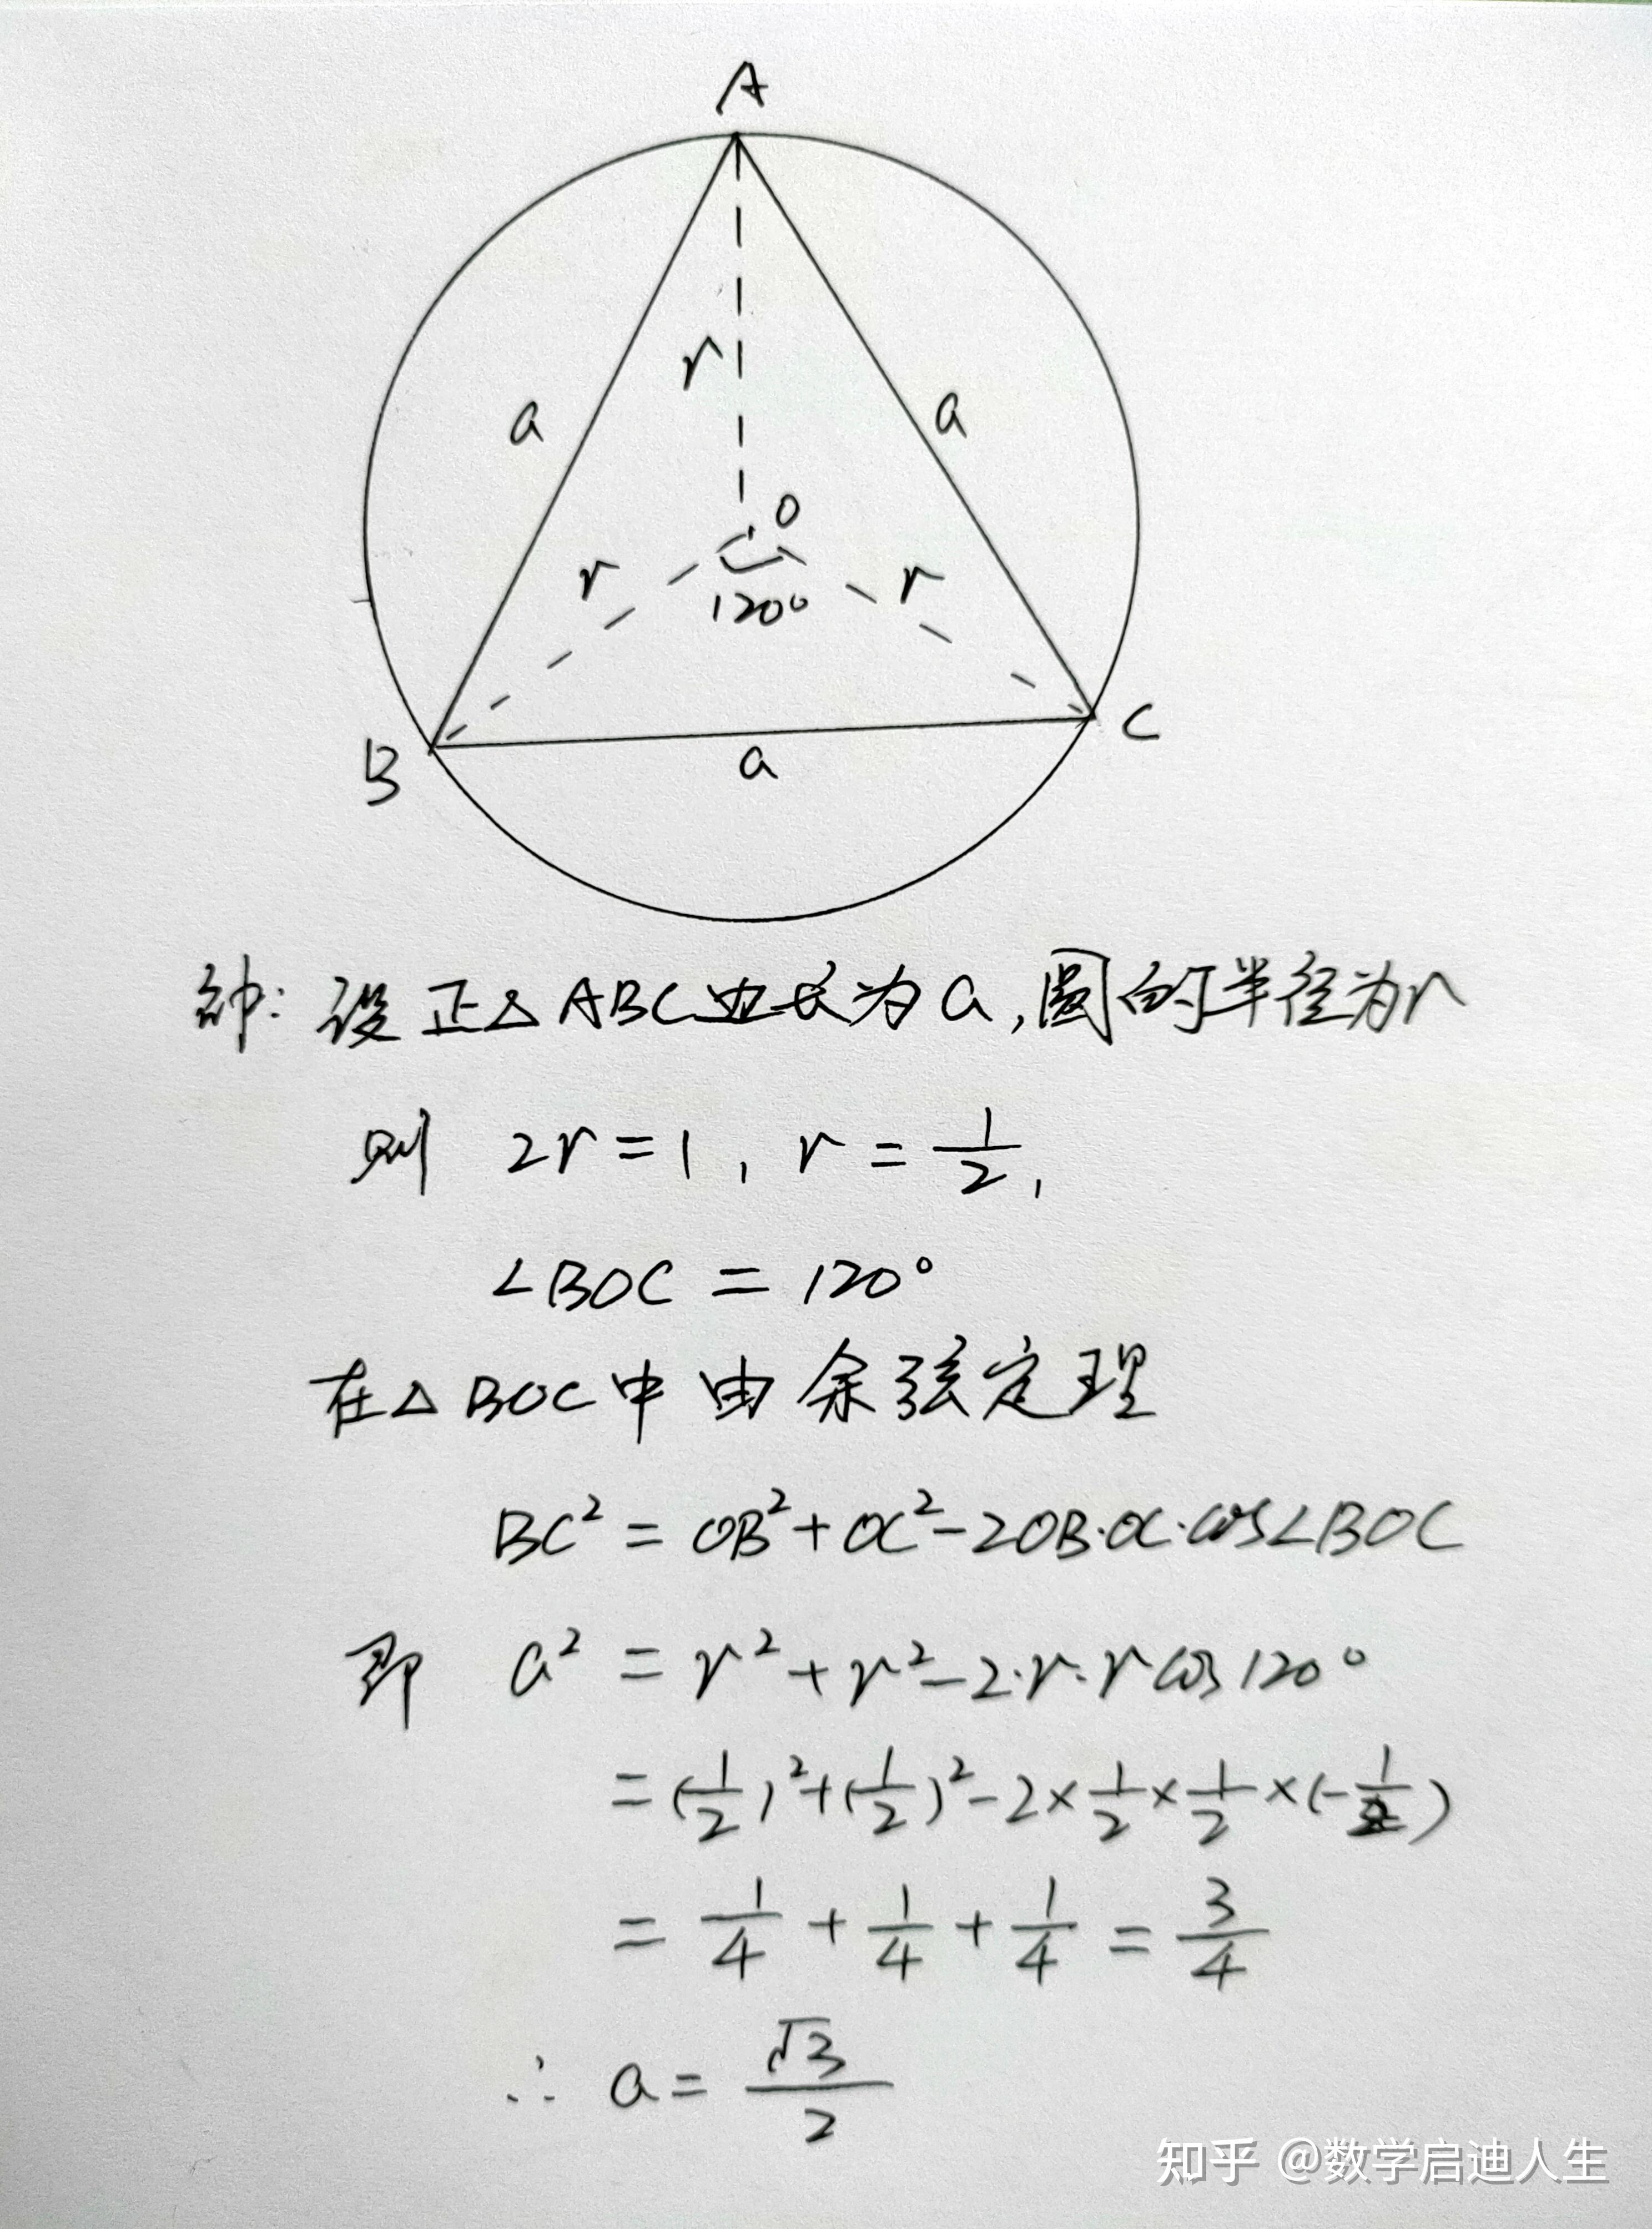 A
r
a
a
O
r
r
120°
B
C
a
解: 设正△ABC边长为a,圆的半径为r
则 2r=1, r=1/2,
∠BOC = 120°
在△BOC中 由余弦定理
BC² = OB²+OC²-2OB·OC·cos∠BOC
即 a² = r²+r²-2·r·r cos120°
= (1/2)²+(1/2)²-2×1/2×1/2×(-1/2)
= 1/4 + 1/4 + 1/4 = 3/4
∴ a = √3/2
知乎 @数学启迪人生